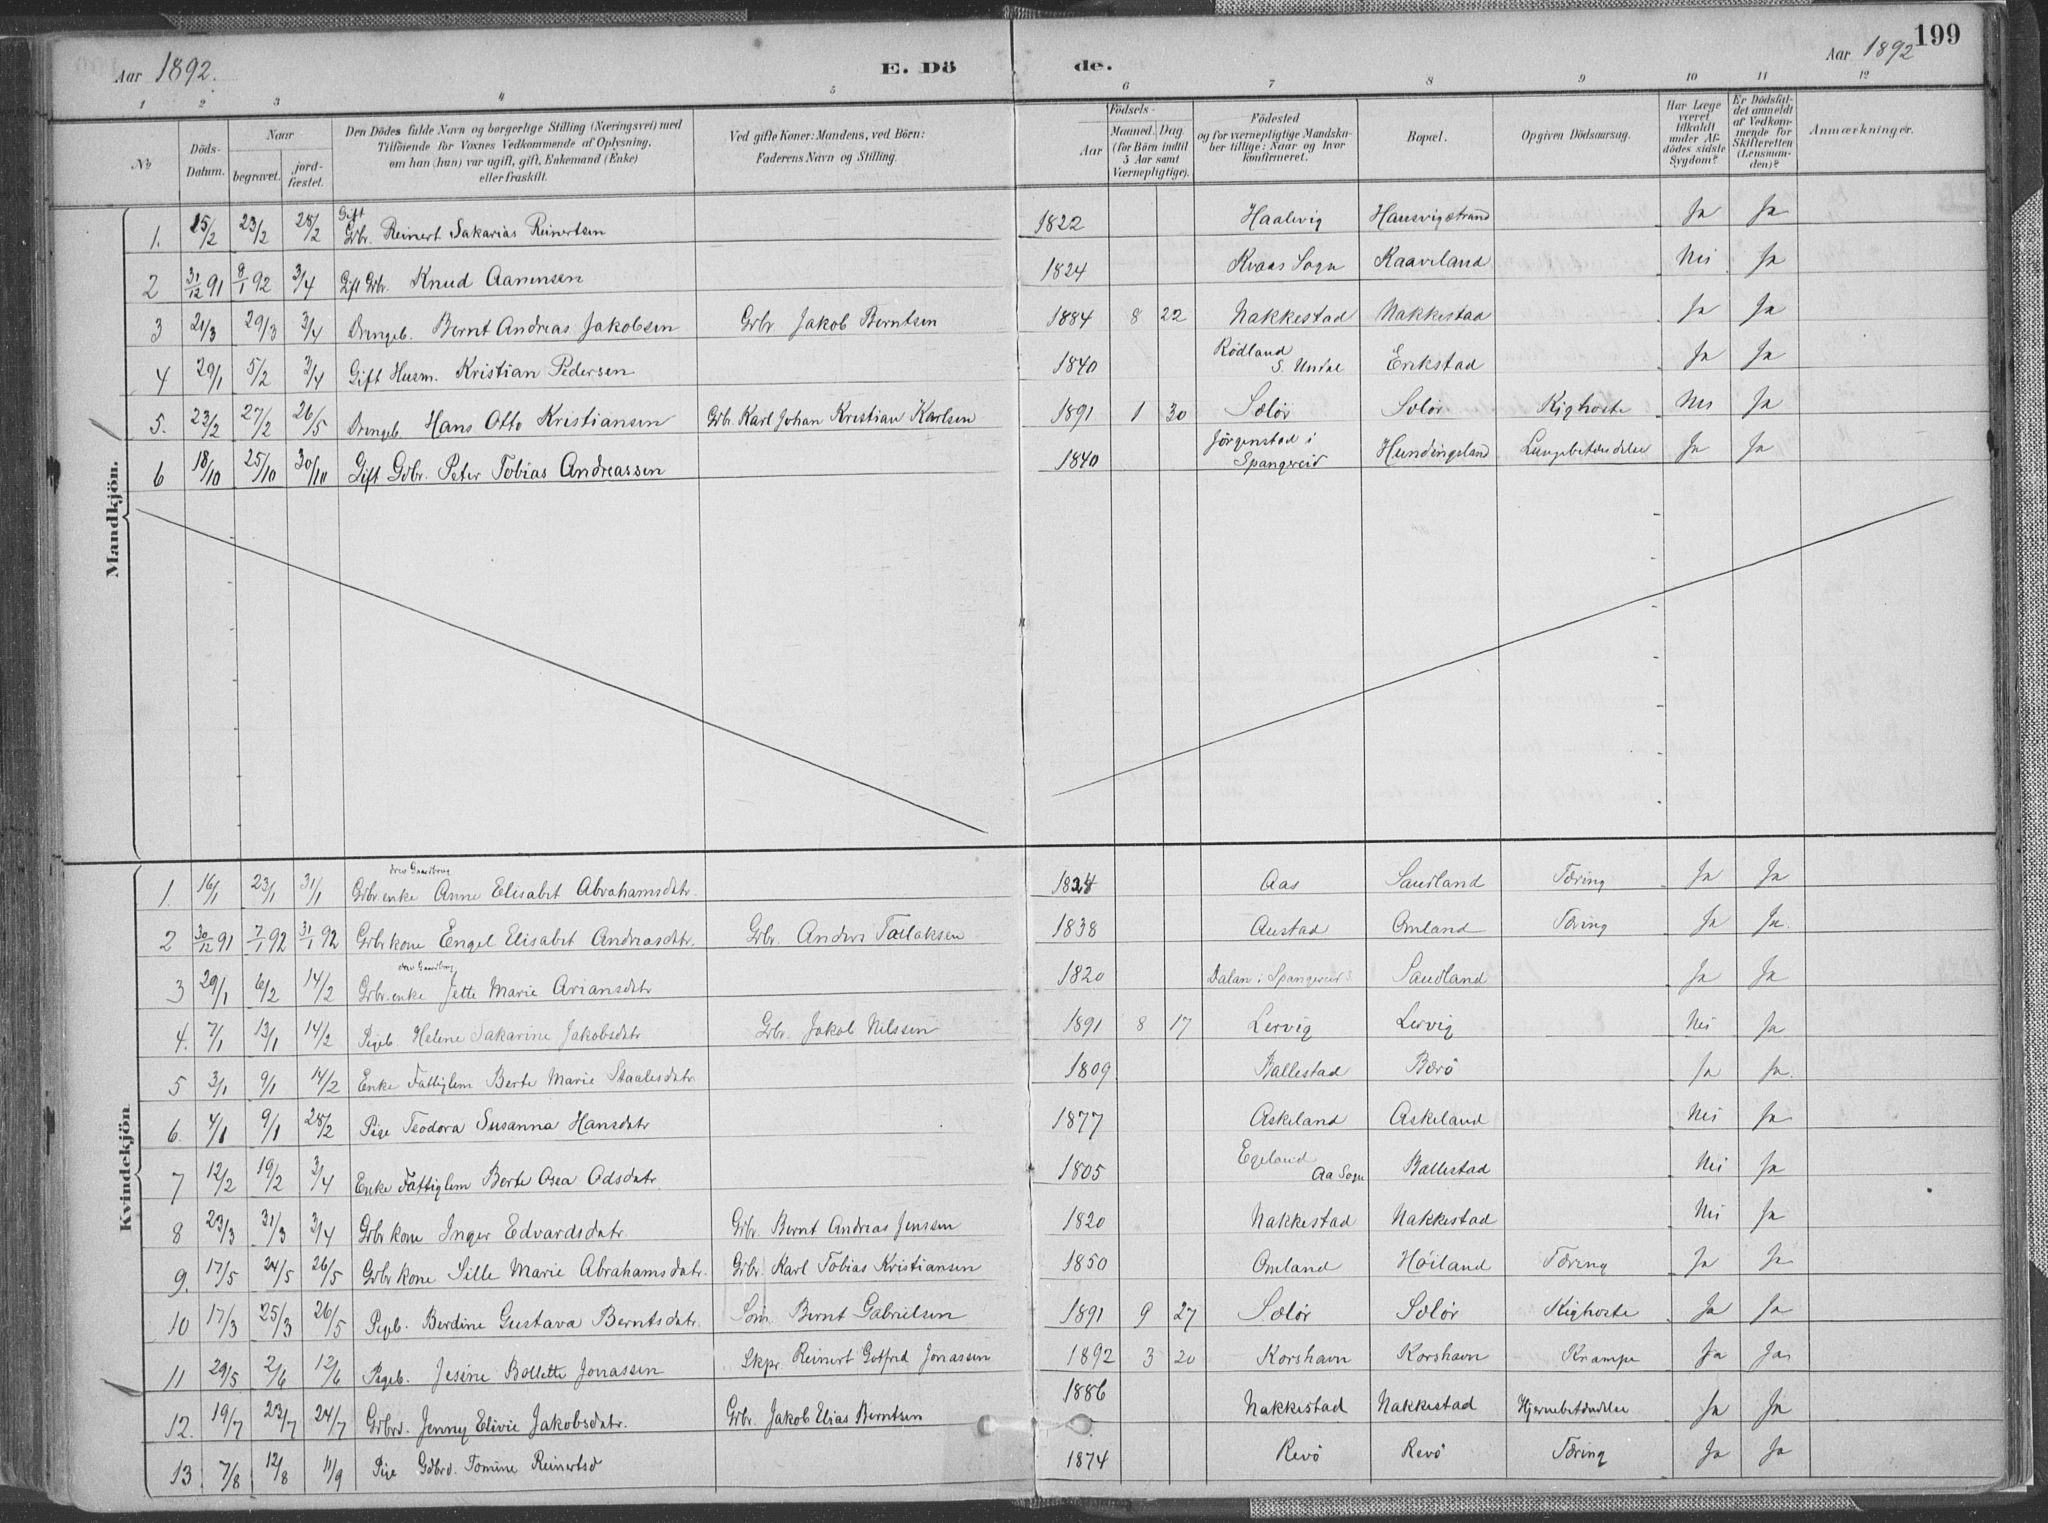 199
Aar 1892.
E. Dö de.
Aar 1892
1 2 3 4 5 6 7 8 9 10 11 12
No
Döds-Datum.
Naar
begravet.
jord-fæstet.
Den Dödes fulde Navn og borgerlige Stilling (Næringsvei) med
Tilföiende for Voxnes Vedkommende af Oplysning,
om han (hun) var ugift, gift, Enkemand (Enke)
eller fraskilt.
Ved gifte Koner: Mandens, ved Börn:
Faderens Navn og Stilling.
Födsels-
Aar
Maaned. Dag.
(for Börn indtil
5 Aar samt
Værnepligtige).
Födested
og for værnepligtige Mandska-
ber tillige: Naar og hvor
konfirmeret.
Bopæl.
Opgiven Dödsaarsag.
Har Læge
været
tilkaldt
under Af-
dödes sidste
Sygdom?
Er Dödsfal-
det anmeldt
af Vedkom-
mende for
Skifteretten
(Lensman-
den)?
Anmærkninger.
Mandkjön.
1. 15/2 23/2 28/2 Gift Grbr. Reinert Sakarias Reinertsen 1822 Haalvig Hausvigstrand Ja Ja
2 31/12 91 8/1 92 3/4 Gift Grbr. Knud Aanensen 1824 Kvaas Sogn Kaaveland Nei Ja
3 21/3 29/3 3/4 Drengeb. Bernt Andreas Jakobsen Grbr Jakob Berntsen 1884 8 22 Nakkestad Nakkestad Ja Ja
4 29/1 5/2 3/4 Gift Husm. Kristian Pedersen 1840 Rødland S. Undal Erikstad Ja Ja
5. 23/2 27/2 26/5 Drengeb. Hans Otto Kristiansen Grbr. Karl Johan Kristian Karlsen 1891 1 30 Sælør Sælør Kighoste Nei Ja
6 18/10 25/10 30/10 Gift Grbr. Peter Tobias Andreassen 1840 Jørgenstad i Spangereid Hundingsland Lungebetændelse Ja Ja
Kvindekjön
1. 16/1 23/1 31/1 Grbr enke Anne Elisabet Abrahamsdatr. 1824 Aas Saudland Tæring Ja Ja
2 30/12 91 7/1 92 31/1 92 Grbr kone Engel Elisabet Andreasdatr. Grbr. Anders Tallaksen 1838 Austad Omland Tæring Ja Ja.
3 29/1 6/2 14/2 Grbr.enke Jette Marie Ariansdatr 1820 Dalan i Spangereid S Saudland Ja Ja
4. 7/1 13/1 14/2 Pigeb. Helene Sakarine Jakobsdatr Grbr. Jakob Nilssen 1891 8 17 Lervig Lervig Nei Ja
5 3/1 9/1 14/2 Enke Fattiglem Berte Marie Staalesdatr 1809 Ballestad Bærø Ja Ja.
6. 4/1 9/1 28/2 Pige Teodora Susanna Hansdatr 1877 Askeland Askeland Nei Ja
7 12/2 19/2 3/4 Enke Fattiglem Berte Asea Odsdatr. 1805 Egeland Aa Sogn Ballestad Nei Ja
8 23/3 31/3 3/4 Grbr kone Inger Edvardsdatr. Grbr. Bernt Andreas Jenssen 1820 Nakkestad Nakkestad Nei Ja
9. 17/5 24/5 26/5 Grbr kone Sille Marie Abrahamsdatr. Grbr. Karl Tobias Kristiansen 1850 Omland Høiland Tæring Ja Ja
10 17/3 25/3 26/5 Pigeb. Berdine Gustava Berntsdatr. Søm. Bernt Gabrielsen 1891 9 27 Sælør Sælør Kighoste Ja Ja
11 29/5 2/6 12/6 Pigeb. Jesine Bollette Jonassen Skpr. Reinert Gotfred Jonassen 1892 3 20 Korshavn Korshavn Krampe Ja Ja
12. 19/7 23/7 24/7 Grbrd. Jenny Elivie Jakobsdatr. Grbr. Jakob Elias Berntsen 1886 Nakkestad Nakkestad Hjernebetændelse Ja Ja
13 7/8 12/8 11/9 Pige Gdbrd. Tomine Reinertsd 1874 Revø Revø Tæring Ja Ja